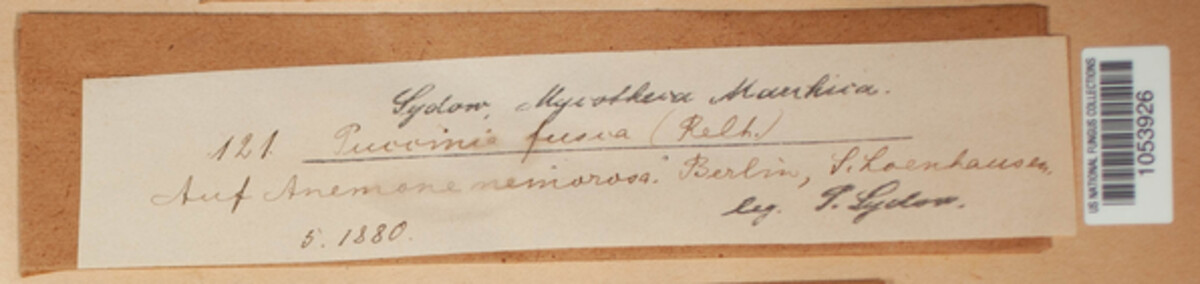 Sydow, Mycotheca Marchica.
121. Puccinia fusca (Relh.)
Auf Anemone nemorosa. Berlin, Schoenhausen.
leg. P. Sydow.
5. 1880.
US NATIONAL FUNGUS COLLECTIONS
1053926